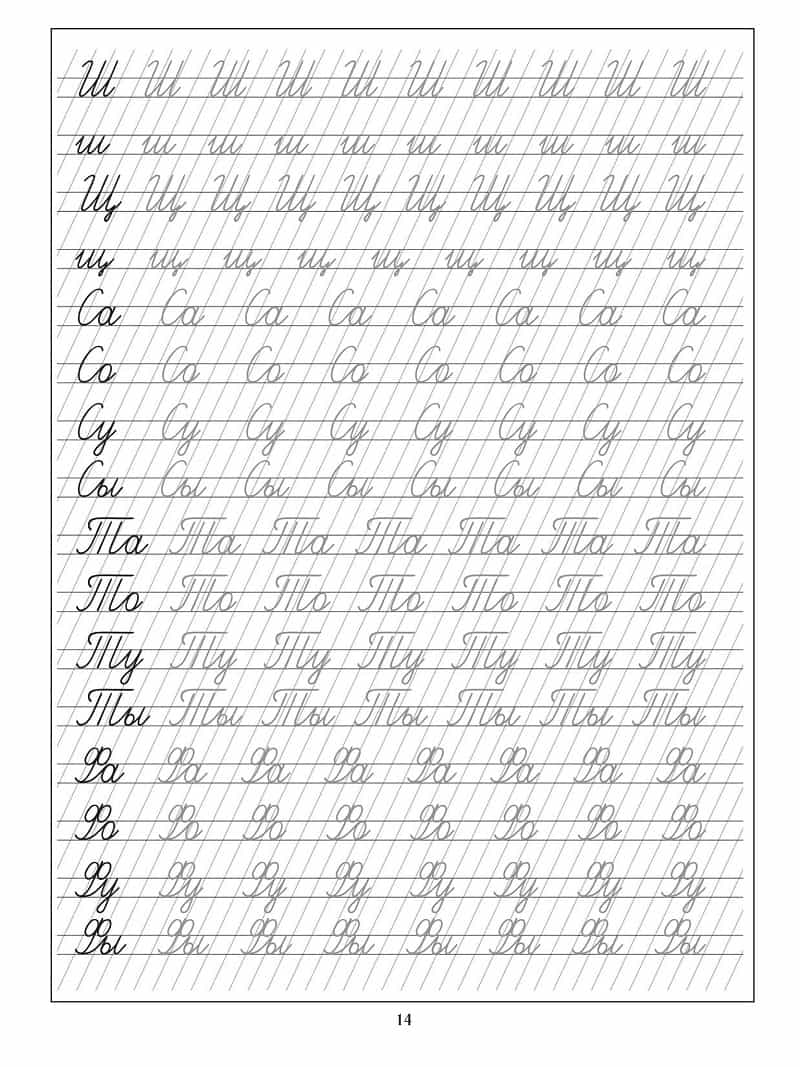 Ш Ш Ш Ш Ш Ш Ш Ш Ш Ш
ш ш ш ш ш ш ш ш ш ш
Щ Щ Щ Щ Щ Щ Щ Щ Щ Щ
щ щ щ щ щ щ щ щ щ
Са Са Са Са Са Са Са Са
Со Со Со Со Со Со Со Со
Су Су Су Су Су Су Су Су
Сы Сы Сы Сы Сы Сы Сы Сы
Та Та Та Та Та Та Та
То То То То То То То
Ту Ту Ту Ту Ту Ту Ту
Ты Ты Ты Ты Ты Ты Ты
Фа Фа Фа Фа Фа Фа Фа Фа
Фо Фо Фо Фо Фо Фо Фо Фо
Фу Фу Фу Фу Фу Фу Фу Фу
Фы Фы Фы Фы Фы Фы Фы Фы
14